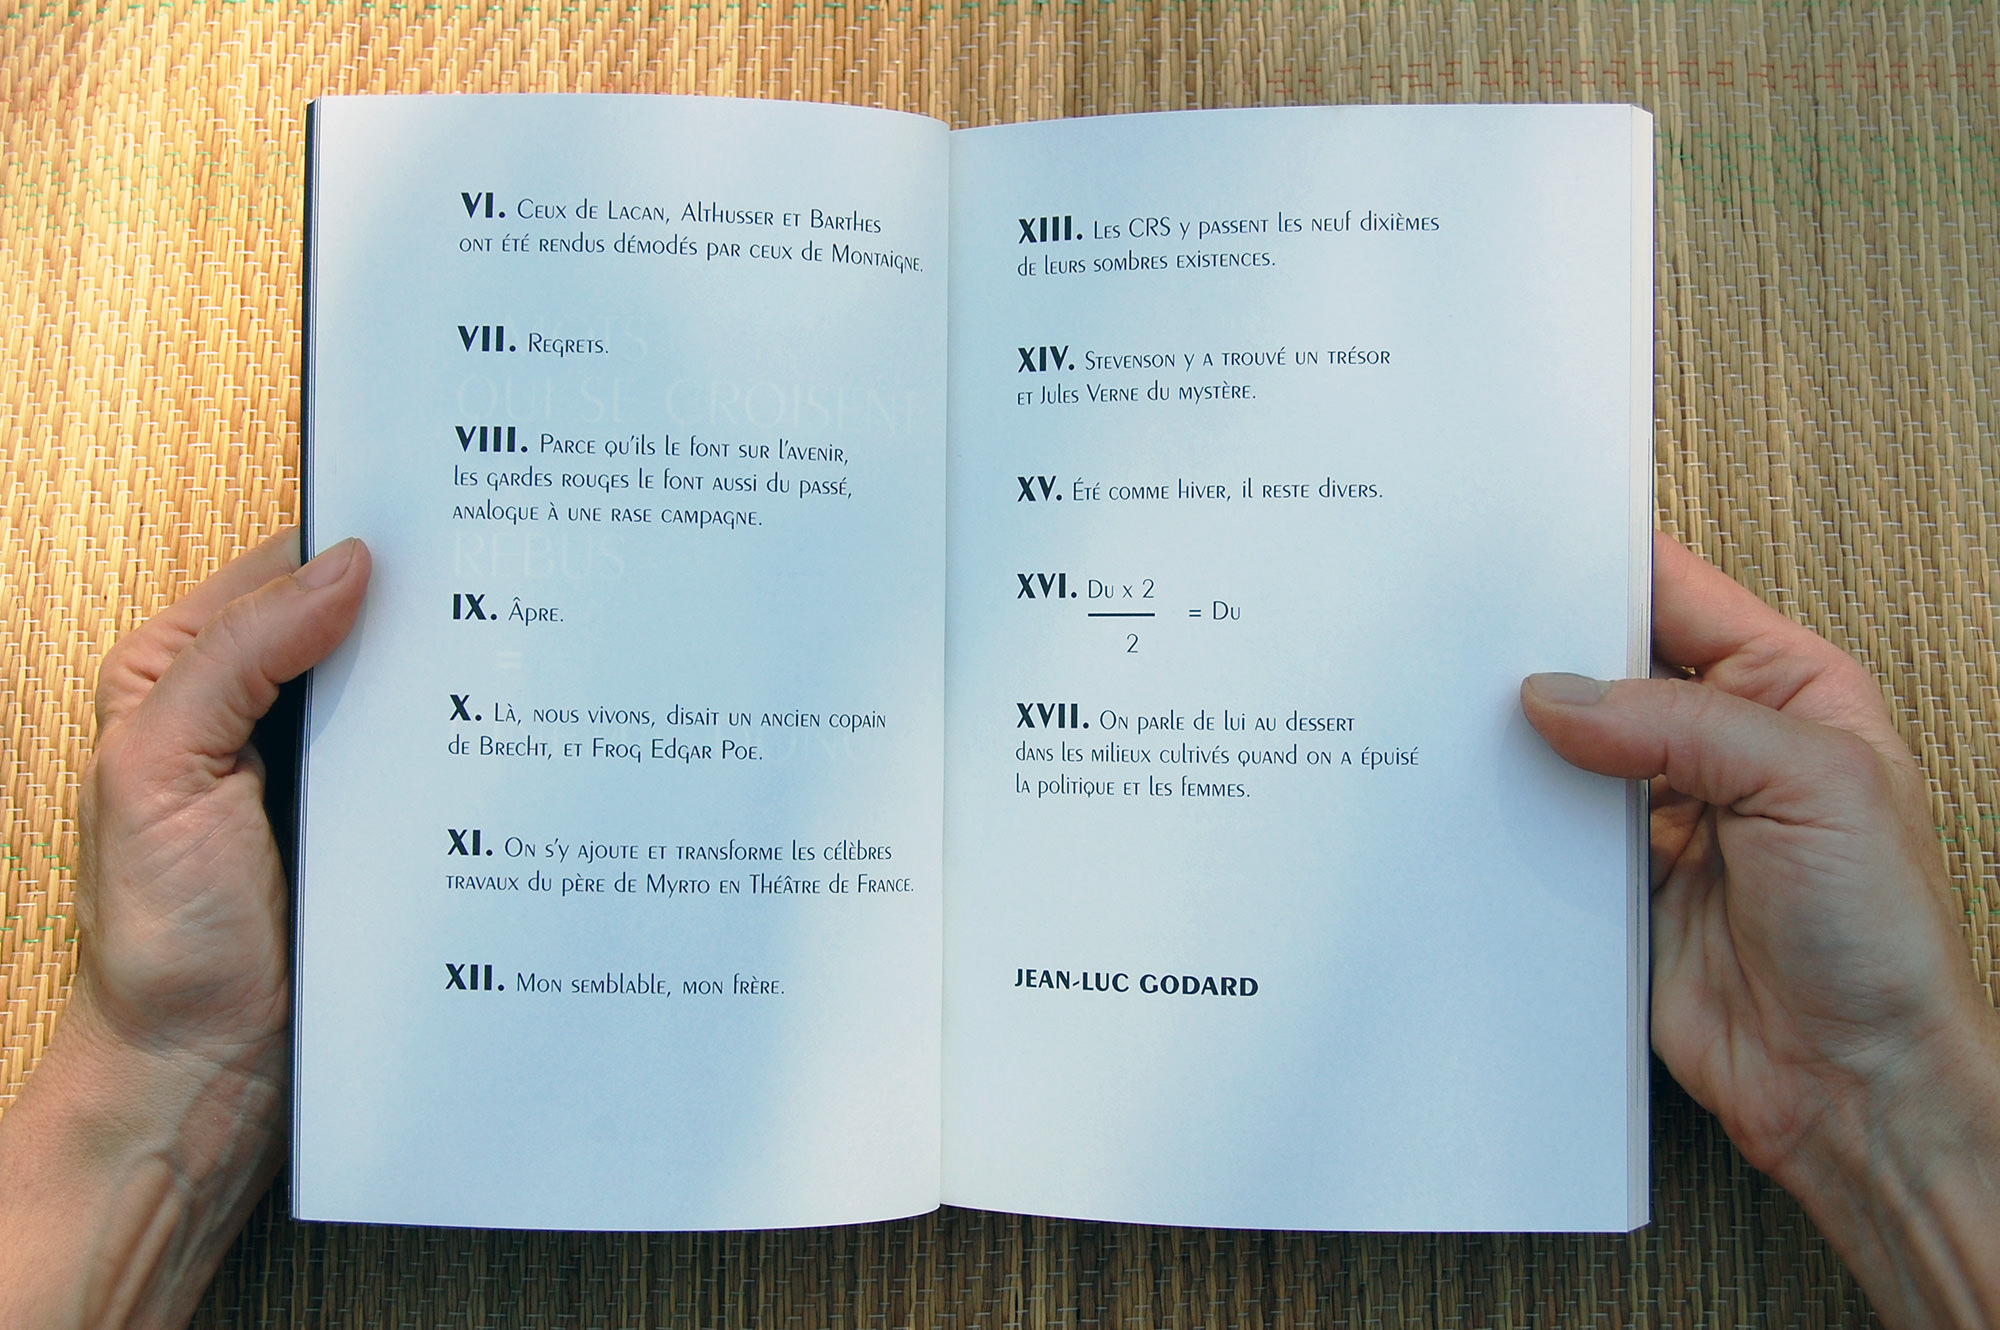 VI. Ceux de Lacan, Althusser et Barthes
ont été rendus démodés par ceux de Montaigne.
VII. Regrets.
VIII. Parce qu'ils le font sur l'avenir,
les gardes rouges le font aussi du passé,
analogue à une rase campagne.
IX. Âpre.
X. Là, nous vivons, disait un ancien copain
de Brecht, et Frog Edgar Poe.
XI. On s'y ajoute et transforme les célèbres
travaux du père de Myrto en Théâtre de France.
XII. Mon semblable, mon frère.
QUI SE CROISENT
REBUS
=
XIII. Les CRS y passent les neuf dixièmes
de leurs sombres existences.
XIV. Stevenson y a trouvé un trésor
et Jules Verne du mystère.
XV. Été comme hiver, il reste divers.
XVI. Du x 2
= Du
2
XVII. On parle de lui au dessert
dans les milieux cultivés quand on a épuisé
la politique et les femmes.
JEAN-LUC GODARD